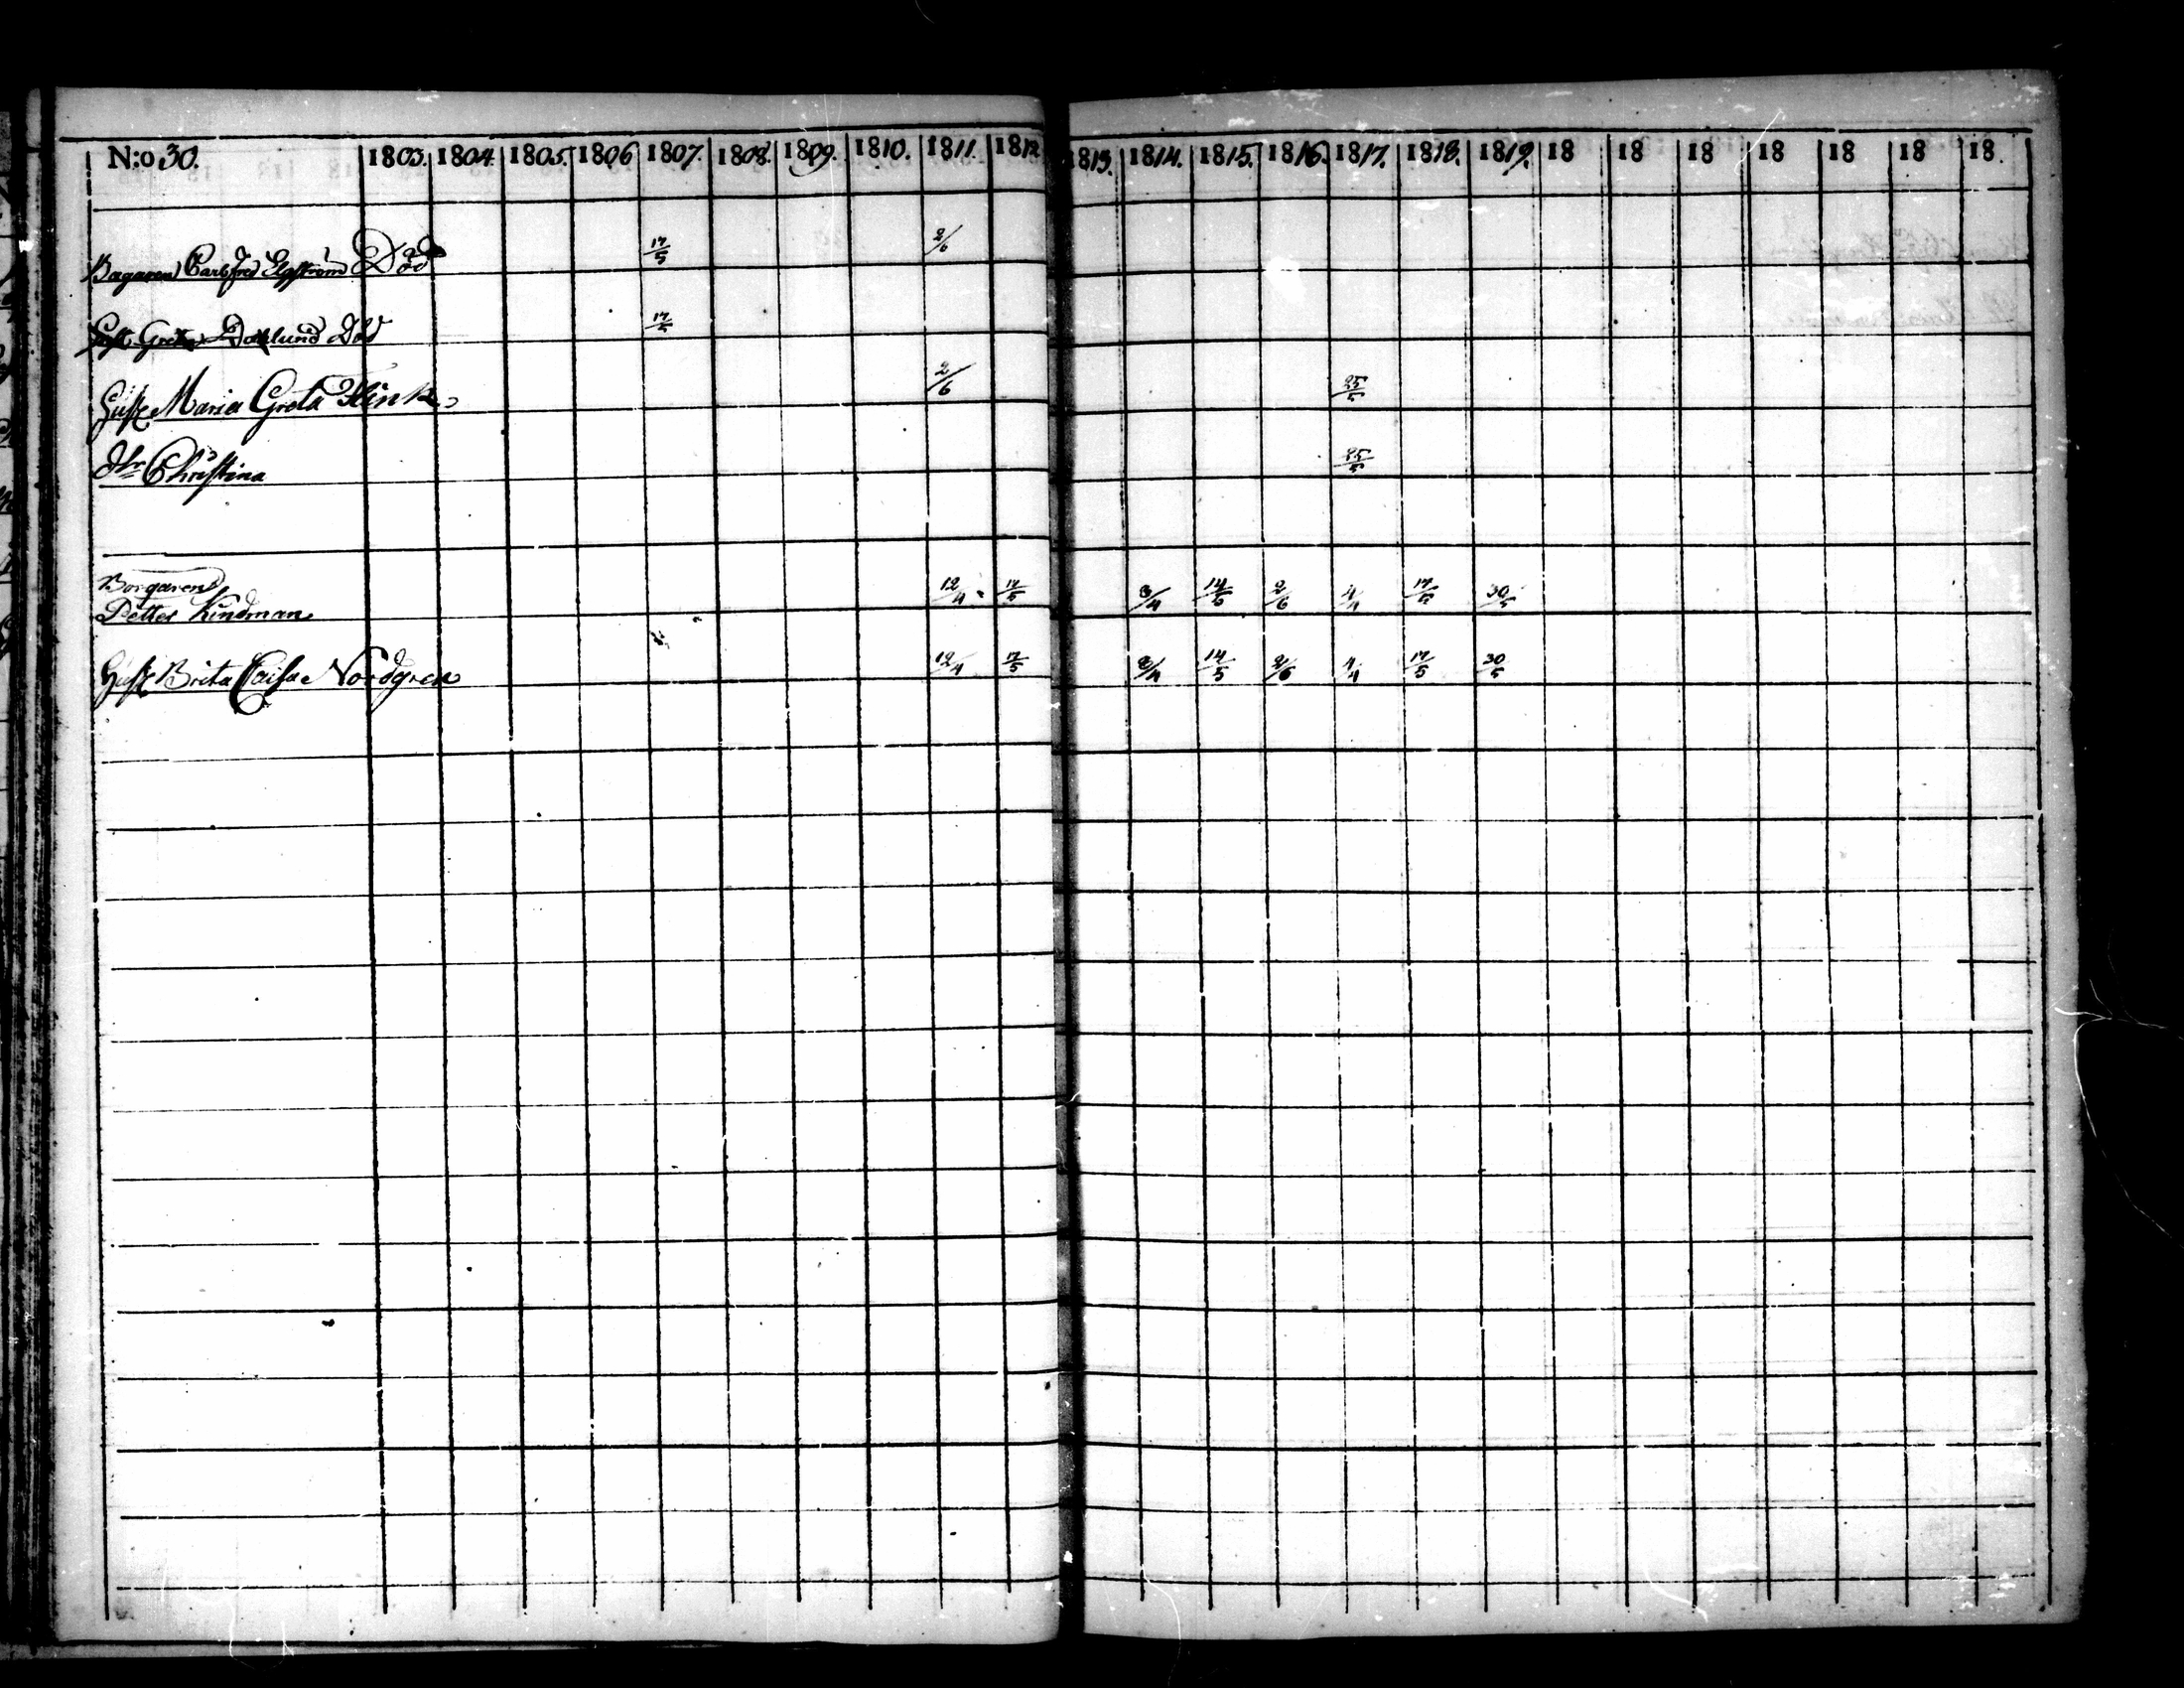 N:o 30. 1803. 1804 1805. 1806 1807. 1808. 1809. 1810. 1811. 1812 1813. 1814. 1815. 1816. 1817. 1818. 1819. 18 18 18 18 18 18 18.
Bagaren Carl Fred Elgström Död 17/5 2/6
Hust Greta Dahlund död 17/5
Hust Maria Greta Flink 2/6 25/5
dtr Christina 25/5
Borgaren
Petter Lindman 12/4 17/5 3/4 14/5 2/6 4/4 17/5 30/5
Hust Brita Caisa Nordgren 12/4 17/5 3/4 14/5 2/6 4/4 17/5 30/5